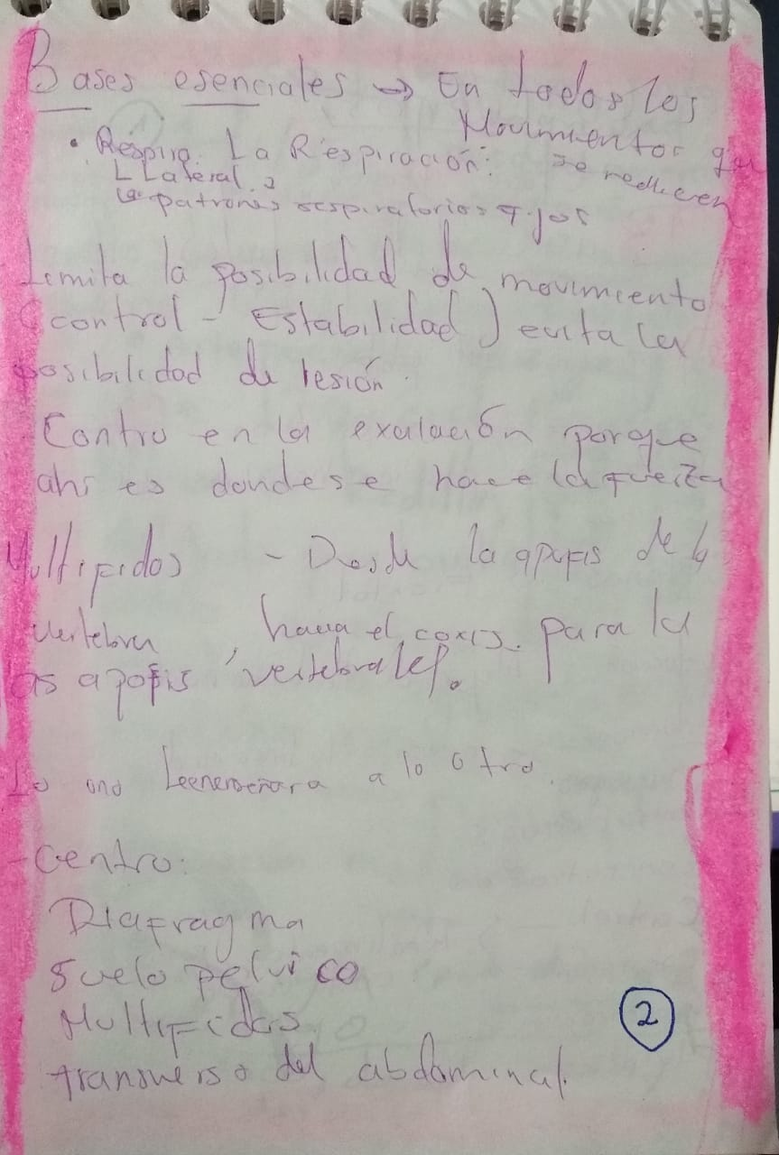 Bases esenciales → En todos los
Movimientos que
se realicen
• Respira. La Respiración:
Lateral.
patrones respiratorios fijos
Limita la posibilidad de movimiento
(control - Estabilidad) evita la
posibilidad de lesión.
Contro en la exalación porque
ahí es donde se hace la fuerza
Multifidos - Desde la apofis de la
vertebra, hacia el coxis. para la
las apofis vertebrales.
Lo uno a lo otro.
- Centro:
Diafragma
Suelo pelvico
Multifidos
transverso del abdominal.
2